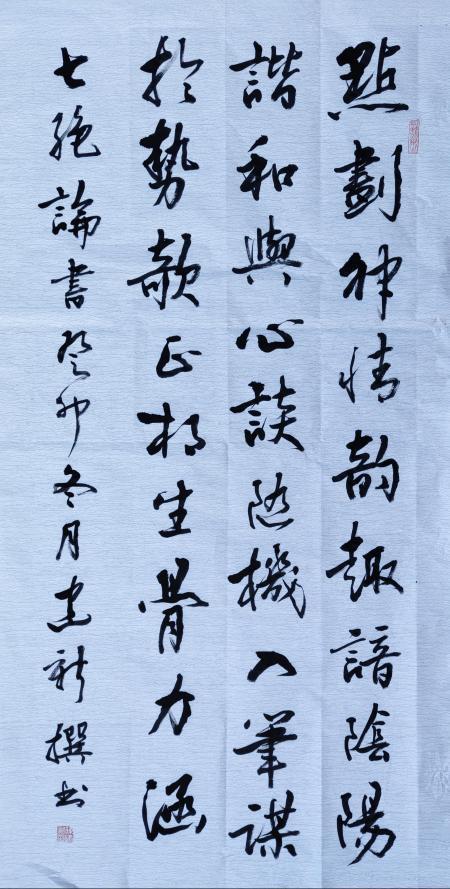 點劃神情韵趣諳陰陽
諧和與心談隨機入筆謀
於勢欹正相生骨力涵
七绝論書癸卯冬月建新撰书